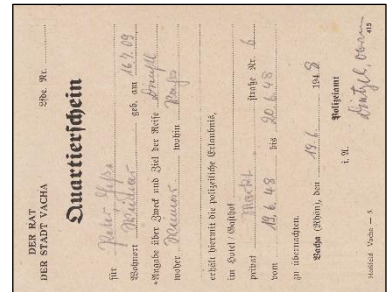 DER RAT
DER STADT VACHA
Lfde. Nr.
Quartierschein
für Peter
Wohnort geb. am 16.7.09
*Angabe über Zweck und Ziel der Reise
woher wohin
erhält hiermit die polizeiliche Erlaubnis,
im Hotel / Gasthof
privat Markt straße Nr. 6
vom 19.6.48 bis 20.6.48
zu übernachten.
Vacha (Rhön), den 19.6. 1948
Polizeiamt
i. A.
Vacha — 5. 415